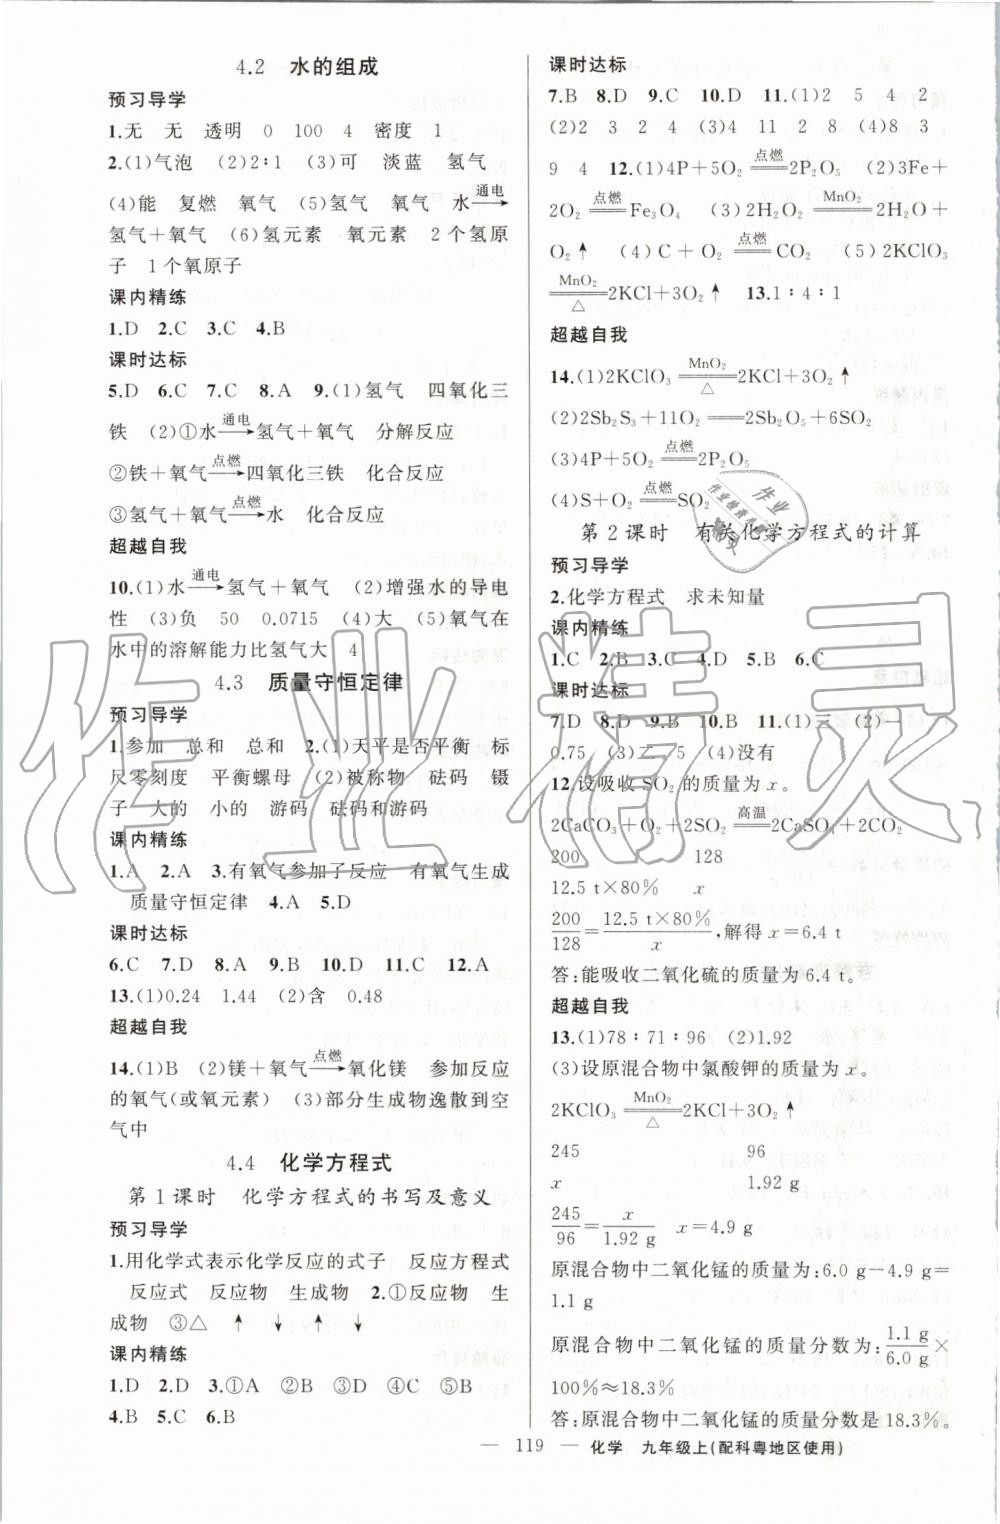 4.2 水的组成
预习导学
1.无 无 透明 0 100 4 密度 1
2.(1)气泡 (2)2∶1 (3)可 淡蓝 氢气
(4)能 复燃 氧气 (5)氢气 氧气 水 —通电→
氢气＋氧气 (6)氢元素 氧元素 2个氢原
子 1个氧原子
课内精练
1.D 2.C 3.C 4.B
课时达标
5.D 6.C 7.C 8.A 9.(1)氢气 四氧化三
铁 (2)①水 —通电→ 氢气＋氧气 分解反应
②铁＋氧气 —点燃→ 四氧化三铁 化合反应
③氢气＋氧气 —点燃→ 水 化合反应
超越自我
10.(1)水 —通电→ 氢气＋氧气 (2)增强水的导电
性 (3)负 50 0.0715 (4)大 (5)氧气在
水中的溶解能力比氢气大 4
4.3 质量守恒定律
预习导学
1.参加 总和 总和 2.(1)天平是否平衡 标
尺零刻度 平衡螺母 (2)被称物 砝码 镊
子 大的 小的 游码 砝码和游码
课内精练
1.A 2.A 3.有氧气参加了反应 有氧气生成
质量守恒定律 4.A 5.D
课时达标
6.C 7.D 8.A 9.B 10.D 11.C 12.A
13.(1)0.24 1.44 (2)含 0.48
超越自我
14.(1)B (2)镁＋氧气 —点燃→ 氧化镁 参加反应
的氧气(或氧元素) (3)部分生成物逸散到空
气中
4.4 化学方程式
第1课时 化学方程式的书写及意义
预习导学
1.用化学式表示化学反应的式子 反应方程式
反应式 反应物 生成物 2.①反应物 生
成物 ③△ ↑ ↓ ↑ ↓
课内精练
1.D 2.D 3.①A ②B ③D ④C ⑤B
4.B 5.C 6.B
课时达标
7.B 8.D 9.C 10.D 11.(1)2 5 4 2
(2)2 3 2 4 (3)4 11 2 8 (4)8 3
9 4 12.(1)4P＋5O₂ =点燃= 2P₂O₅ (2)3Fe＋
2O₂ =点燃= Fe₃O₄ (3)2H₂O₂ =MnO₂= 2H₂O＋
O₂↑ (4)C＋O₂ =点燃= CO₂ (5)2KClO₃
=MnO₂/△= 2KCl＋3O₂↑ 13.1∶4∶1
超越自我
14.(1)2KClO₃ =MnO₂/△= 2KCl＋3O₂↑
(2)2Sb₂S₃＋11O₂ ═══ 2Sb₂O₅＋6SO₂
(3)4P＋5O₂ =点燃= 2P₂O₅
(4)S＋O₂ =点燃= SO₂
第2课时 有关化学方程式的计算
预习导学
2.化学方程式 求未知量
课内精练
1.C 2.B 3.C 4.D 5.B 6.C
课时达标
7.D 8.D 9.B 10.B 11.(1)三 (2)一
0.75 (3)二 5 (4)没有
12.设吸收SO₂的质量为x。
2CaCO₃＋O₂＋2SO₂ =高温= 2CaSO₄＋2CO₂
200 128
12.5 t×80% x
200/128＝12.5 t×80%/x,解得x＝6.4 t
答:能吸收二氧化硫的质量为6.4 t。
超越自我
13.(1)78∶71∶96 (2)1.92
(3)设原混合物中氯酸钾的质量为x。
2KClO₃ =MnO₂/△= 2KCl＋3O₂↑
245 96
x 1.92 g
245/96＝x/1.92 g x＝4.9 g
原混合物中二氧化锰的质量为:6.0 g－4.9 g＝
1.1 g
原混合物中二氧化锰的质量分数为:1.1 g/6.0 g×
100%≈18.3%
答:原混合物中二氧化锰的质量分数是18.3%。
— 119 — 化学 九年级上(配科粤地区使用)
作业精灵